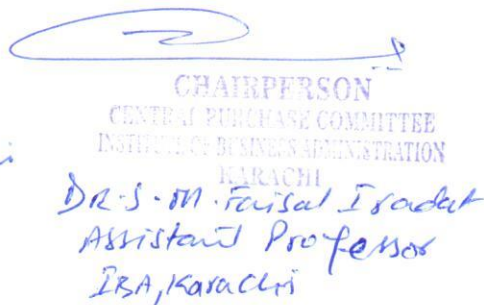 CHAIRPERSON
CENTRAL PURCHASE COMMITTEE
INSTITUTE OF BUSINESS ADMINISTRATION
KARACHI
i
DR. S. M. Faisal Iradat
Assistant Professor
IBA, Karachi